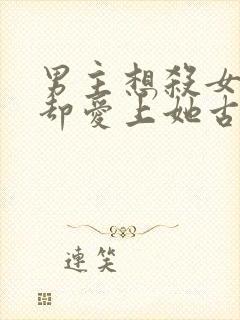 男主想殺女
却愛上她古
連笑